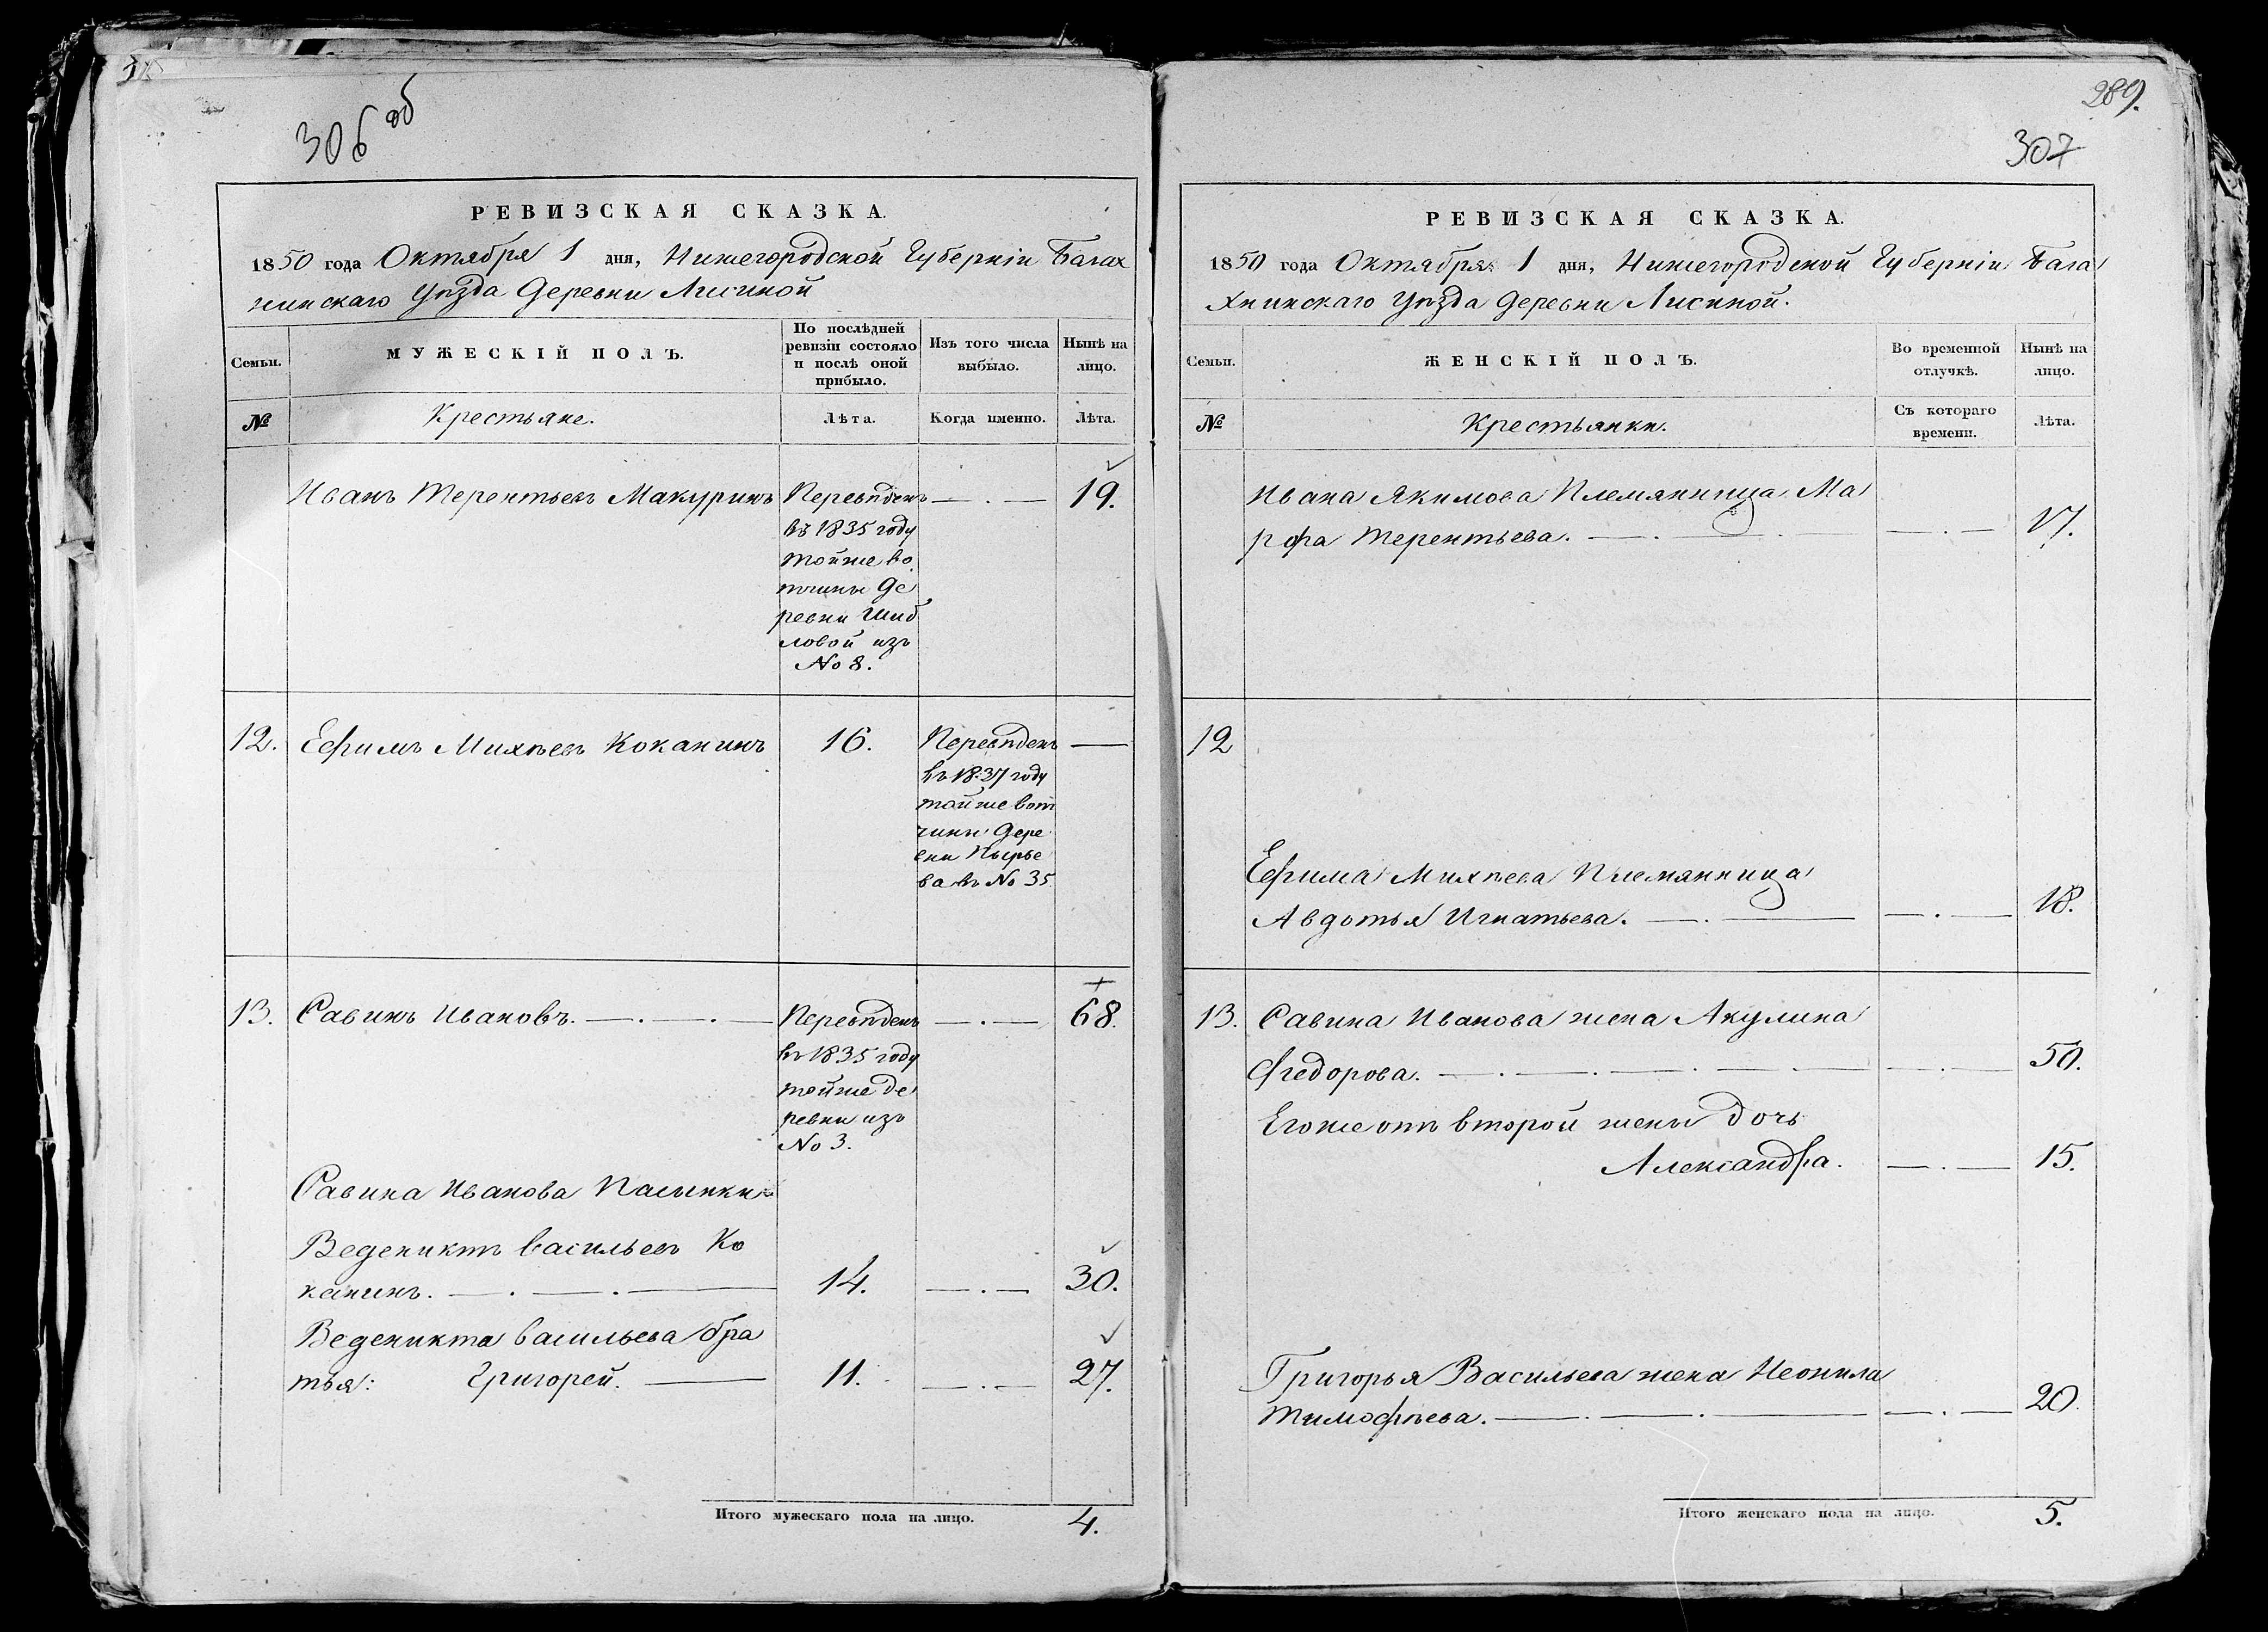 306 об
РЕВИЗСКАЯ СКАЗКА.
1850 года Октября 1 дня, Нижегородской Губерніи Балах
нинскаго Уѣзда Деревни Лисиной
Семьи.
МУЖЕСКІЙ ПОЛЪ.
По послѣдней
ревизіи состояло
и послѣ оной
прибыло.
Изъ того числа
выбыло.
Нынѣ на
лицо.
№
Крестьяне.
Лѣта.
Когда именно.
Лѣта.
Иванъ Терентьевъ Макуринъ Переѣденъ —.— 19.
въ 1835 году
тойже во
тчины Де
ревни Шиб
ловой изъ
No 8.
12. Ефимъ Михѣевъ Коканинъ 16. Переѣденъ —
въ 1837 году
тойже вот
чины Дере
вни Пырье
ва въ No 35
13. Савинъ Ивановъ. —.—.— Переѣденъ —.— 68.
въ 1835 году
тойже де
ревни изъ
No 3.
Савина Иванова Пасынки
Ведениктъ Васильевъ Ко
канинъ. —.—.— 14. —.— 30.
Веденикта Васильева бра
тья: Григорей. — 11. —.— 27.
Итого мужескаго пола на лицо. 4.
289.
307
РЕВИЗСКАЯ СКАЗКА.
1850 года Октября 1 дня, Нижегородской Губерніи Бала
хнинскаго Уѣзда Деревни Лисиной.
Семьи.
ЖЕНСКІЙ ПОЛЪ.
Во временной
отлучкѣ.
Нынѣ на
лицо.
№
Крестьянки.
Съ котораго
времени.
Лѣта.
Ивана Якимова Племянница Ма
рфа Терентьева. —.—.— —.— 17.
12
Ефима Михѣева Племянница
Авдотья Игнатьева. —.— —.— 18.
13. Савина Иванова жена Акулина
Федорова. —.—.—.—.— —.— 50.
Егоже отъ второй жены дочь
Александра. —.— 15.
Григорья Васильева жена Неонила
Тимофѣева. —.—.— —.— 20.
Итого женскаго пола на лицо. 5.